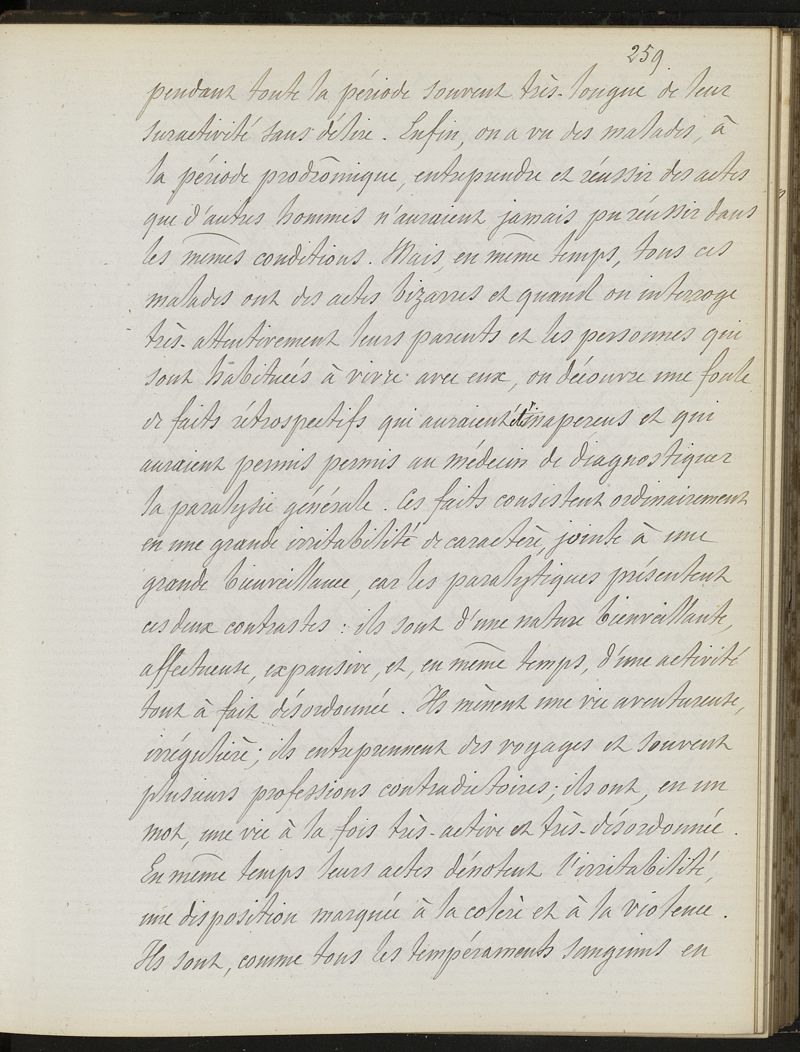 259
pendant toute la période souvent très-longue de leur
suractivité sans délire. Enfin, on a vu des malades, à
la période prodrômique, entreprendre et réussir des actes
que d'autres hommes n'auraient jamais pu réussir dans
les mêmes conditions. Mais, en même temps, tous ces
malades ont des actes bizarres et quand on interroge
très-attentivement leurs parents et les personnes qui
sont habituées à vivre avec eux, on découvre une foule
de faits rétrospectifs qui auraient inaperçus et qui
auraient permis permis au médecin de diagnostiquer
la paralysie générale. Ces faits consistent ordinairement
en une grande irritabilité de caractère, jointe à une
grande bienveillance, car les paralytiques présentent
ces deux contrastes : ils sont d'une nature bienveillante,
affectueuse, expansive, et, en même temps, d'une activité
tout à fait désordonnée. Ils mènent une vie aventureuse,
irrégulière; ils entreprennent des voyages et souvent
plusieurs professions contradictoires; ils ont, en un
mot, une vie à la fois très-active et très-désordonnée.
En même temps leurs actes dénotent l'irritabilité,
une disposition marquée à la colère et à la violence.
Ils sont, comme tous les tempéraments sanguins en